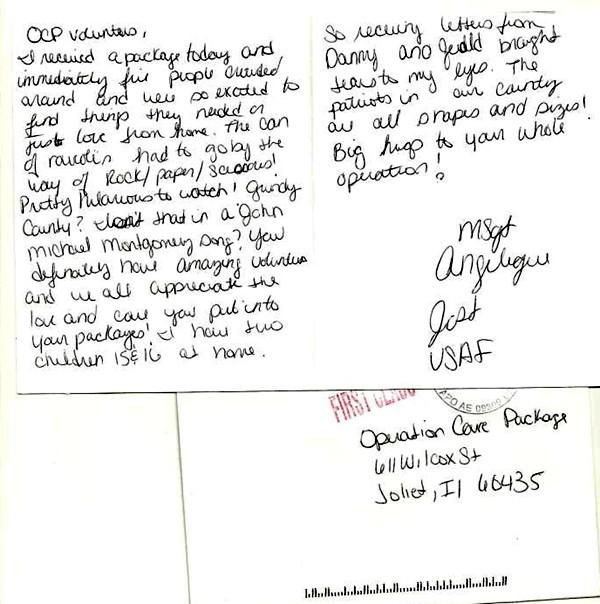 OCP volunteers,
I received a package today and
immediately five people crowded
around and were so excited to
find things they needed or
just love from home. The can
of ravioli had to go by the
way of Rock/paper/scissors!
Pretty hilarious to watch! Grundy
County? Isn't that in a John
Michael Montgomery song? You
definately have amazing volunteers
and we all appreciate the
love and care you put into
your packages! I have two
children 15 & 16 at home.
So receiving letters from
Danny and brought
tears to my eyes. The
patriots in our country
are all shapes and sizes!
Big hugs to your whole
operation!
MSgt
Angelique
Jost
USAF
FIRST CLASS
APO AE
Operation Care Package
611 Wilcox St
Joliet, Il 60435